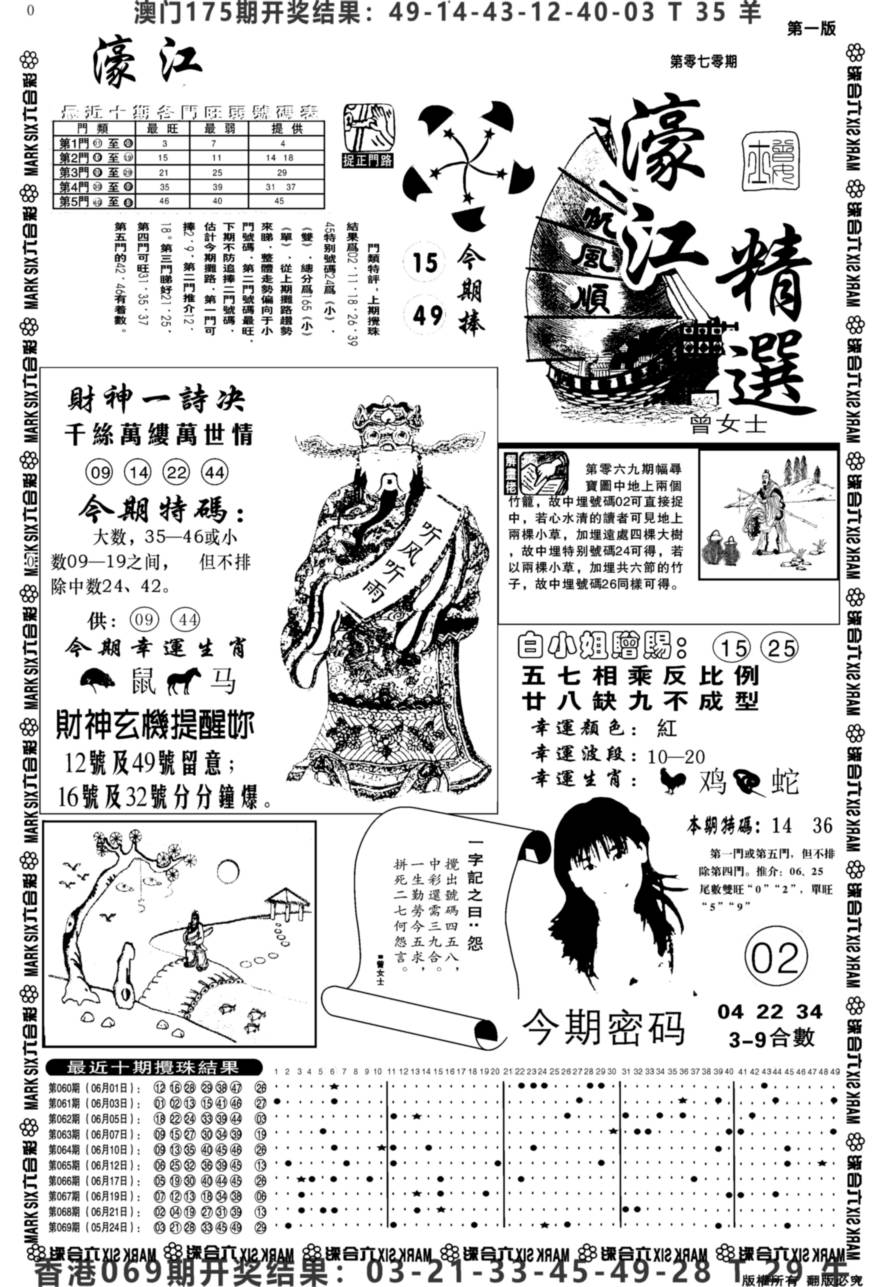 0
澳门175期开奖结果：49-14-43-12-40-03 T 35 羊
第一版
濠江
第零七零期
濠江
精選
一帆風順
曾女士
最近十期各門旺弱號碼表
門類 最旺 最弱 提供
第1門 至 3 7 4
第2門 至 15 11 14 18
第3門 至 21 25 29
第4門 至 35 39 31 37
第5門 至 46 40 45
捉正門路
門類特評，上期攪珠
結果爲02·11·18·26·39
45特别號碼24爲（小）、
（雙），總分爲165（小）
（單），從上期攤路趨勢
來睇，整體走勢偏向于小
門號碼，第二門號碼最旺，
下期不防追捧二門號碼，
估計今期攤路：第一門可
捧2·9，第二門推介12·
18。第三門睇好21·25，
第四門可旺31·35·37
第五門的42·46有着數。
今期捧
15
49
財神一詩决
千絲萬縷萬世情
09 14 22 44
今期特碼：
大数，35—46或小
数09—19之间， 但不排
除中数24、42。
供：09 44
今期幸運生肖
鼠 马
財神玄機提醒妳
12號及49號留意；
16號及32號分分鐘爆。
听风听雨
解畫佬
第零六九期幅尋
寶圖中地上兩個
竹籠，故中埋號碼02可直接捉
中，若心水清的讀者可見地上
兩棵小草，加埋遠處四棵大樹
，故中埋特别號碼24可得，若
以兩棵小草，加埋共六節的竹
子，故中埋號碼26同樣可得。
白小姐贈賜：15 25
五七相乘反比例
廿八缺九不成型
幸運顏色：紅
幸運波段：10—20
幸運生肖： 鸡 蛇
本期特碼：14 36
第一門或第五門，但不排
除第四門。推介：06、25
尾數雙旺“0”“2”，單旺
“5”“9”
02
今期密码
04 22 34
3-9合數
一字記之曰：怨
攪出號碼四五八，
中彩還需三九合。
一生勤勞今五求，
拼死二七何怨言。
■曾女士
最近十期攪珠結果
1 2 3 4 5 6 7 8 9 10 11 12 13 14 15 16 17 18 19 20 21 22 23 24 25 26 27 28 29 30 31 32 33 34 35 36 37 38 39 40 41 42 43 44 45 46 47 48 49
第060期（06月01日）：12 16 28 29 38 47 26
第061期（06月03日）：01 02 13 15 41 46 27
第062期（06月05日）：18 22 24 33 39 44 03
第063期（06月07日）：09 15 27 30 34 39 19
第064期（06月10日）：09 13 35 40 45 46 26
第065期（06月12日）：06 25 32 36 39 45 13
第066期（06月17日）：05 19 30 40 44 45 28
第067期（06月19日）：07 12 13 18 34 38 06
第068期（06月21日）：02 04 19 27 31 39 13
第069期（05月24日）：03 21 28 33 45 49 29
MARK SIX六合彩
香港069期开奖结果：03-21-33-45-49-28 T 29 牛
版權所有 翻版必究